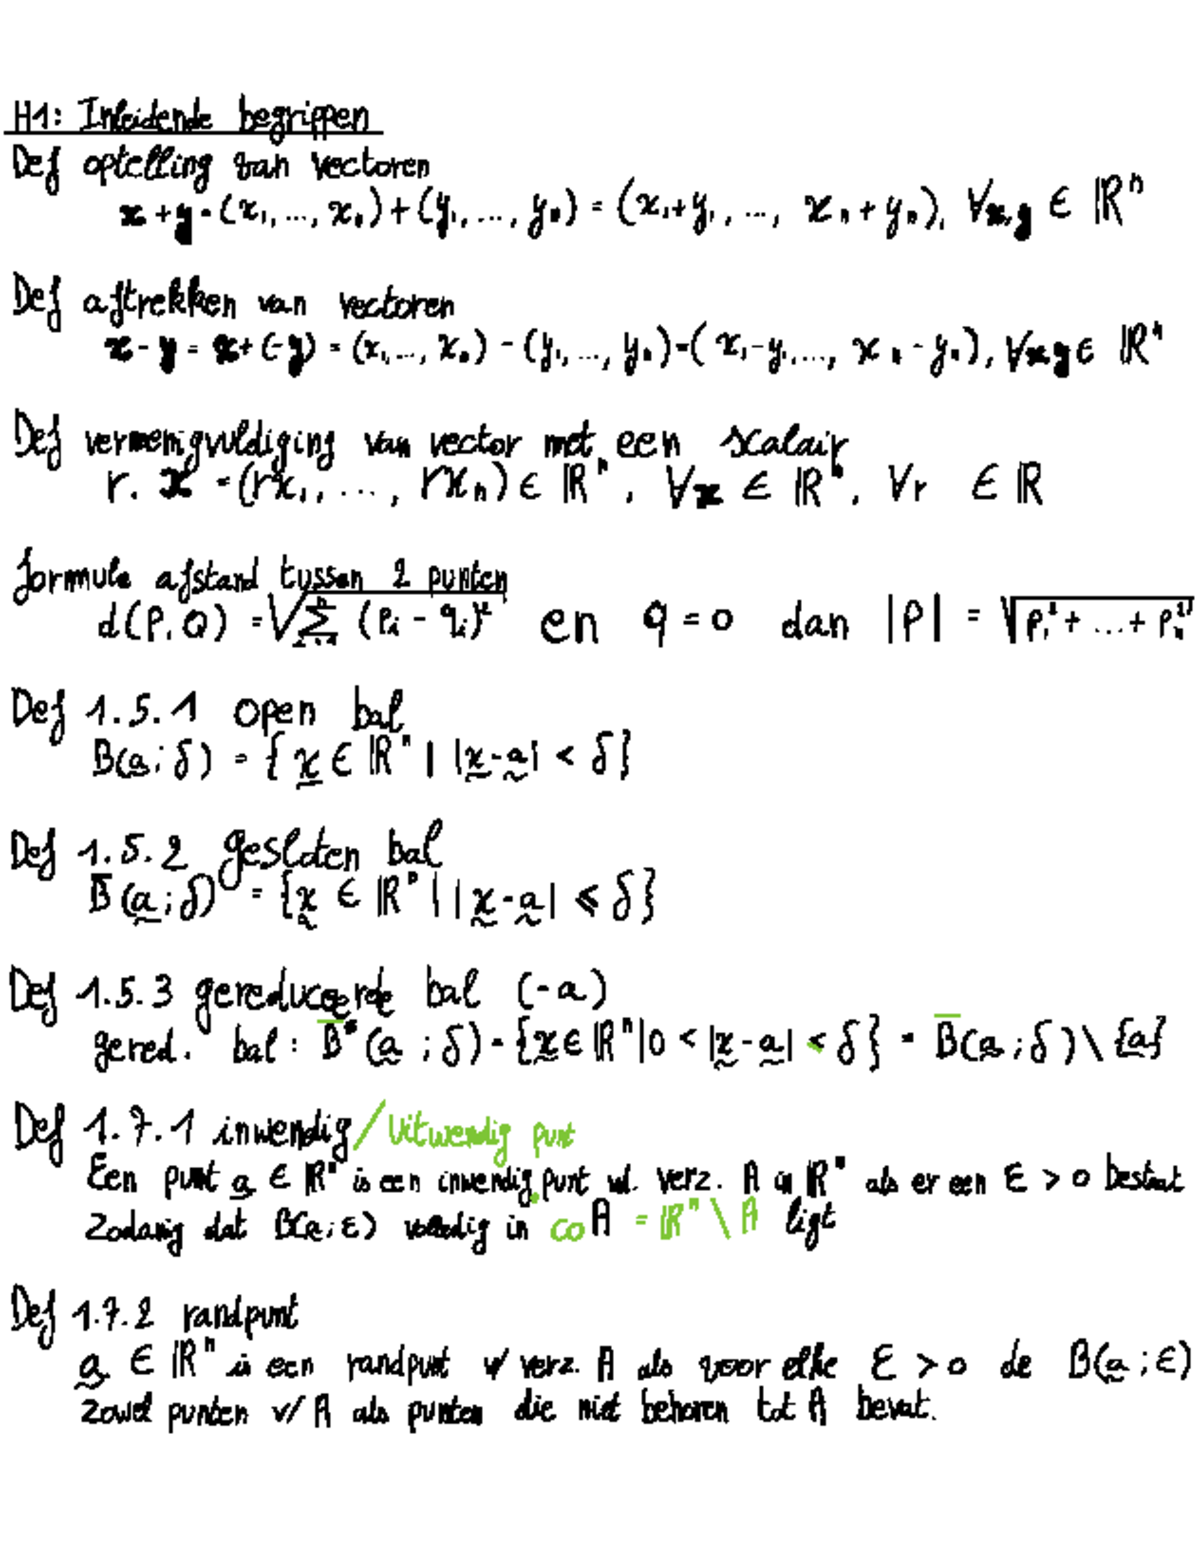 H1: Inleidende begrippen
Def optelling van vectoren
x + y = (x₁, ..., xₙ) + (y₁, ..., yₙ) = (x₁+y₁, ..., xₙ+yₙ), ∀x,y ∈ ℝⁿ
Def aftrekken van vectoren
x - y = x + (-y) = (x₁, ..., xₙ) - (y₁, ..., yₙ) = (x₁-y₁, ..., xₙ-yₙ), ∀x,y ∈ ℝⁿ
Def vermenigvuldiging van vector met een scalair
r. x = (rx₁, ..., rxₙ) ∈ ℝⁿ, ∀x ∈ ℝⁿ, ∀r ∈ ℝ
formule afstand tussen 2 punten
d(P,Q) = √(∑ⁿᵢ₌₁ (pᵢ - qᵢ)²) en q = 0 dan |P| = √(p₁² + ... + pₙ²)
Def 1.5.1 open bal
B(a; δ) = { x ∈ ℝⁿ | |x-a| < δ}
Def 1.5.2 gesloten bal
B̅(a; δ) = {x ∈ ℝⁿ | |x-a| ⩽ δ}
Def 1.5.3 gereduceerde bal (-a)
gered. bal : B̅*(a; δ) = {x ∈ ℝⁿ | 0 < |x-a| ≤ δ} = B̅(a; δ) \ {a}
Def 1.7.1 inwendig / Uitwendig punt
Een punt a ∈ ℝⁿ is een inwendig punt vd. verz. A in ℝⁿ als er een ε > 0 bestaat
zodanig dat B(a; ε) volledig in co A = ℝⁿ \ A ligt
Def 1.7.2 randpunt
a ∈ ℝⁿ is een randpunt v/ verz. A als voor elke ε > 0 de B(a; ε)
zowel punten v/ A als punten die niet behoren tot A bevat.